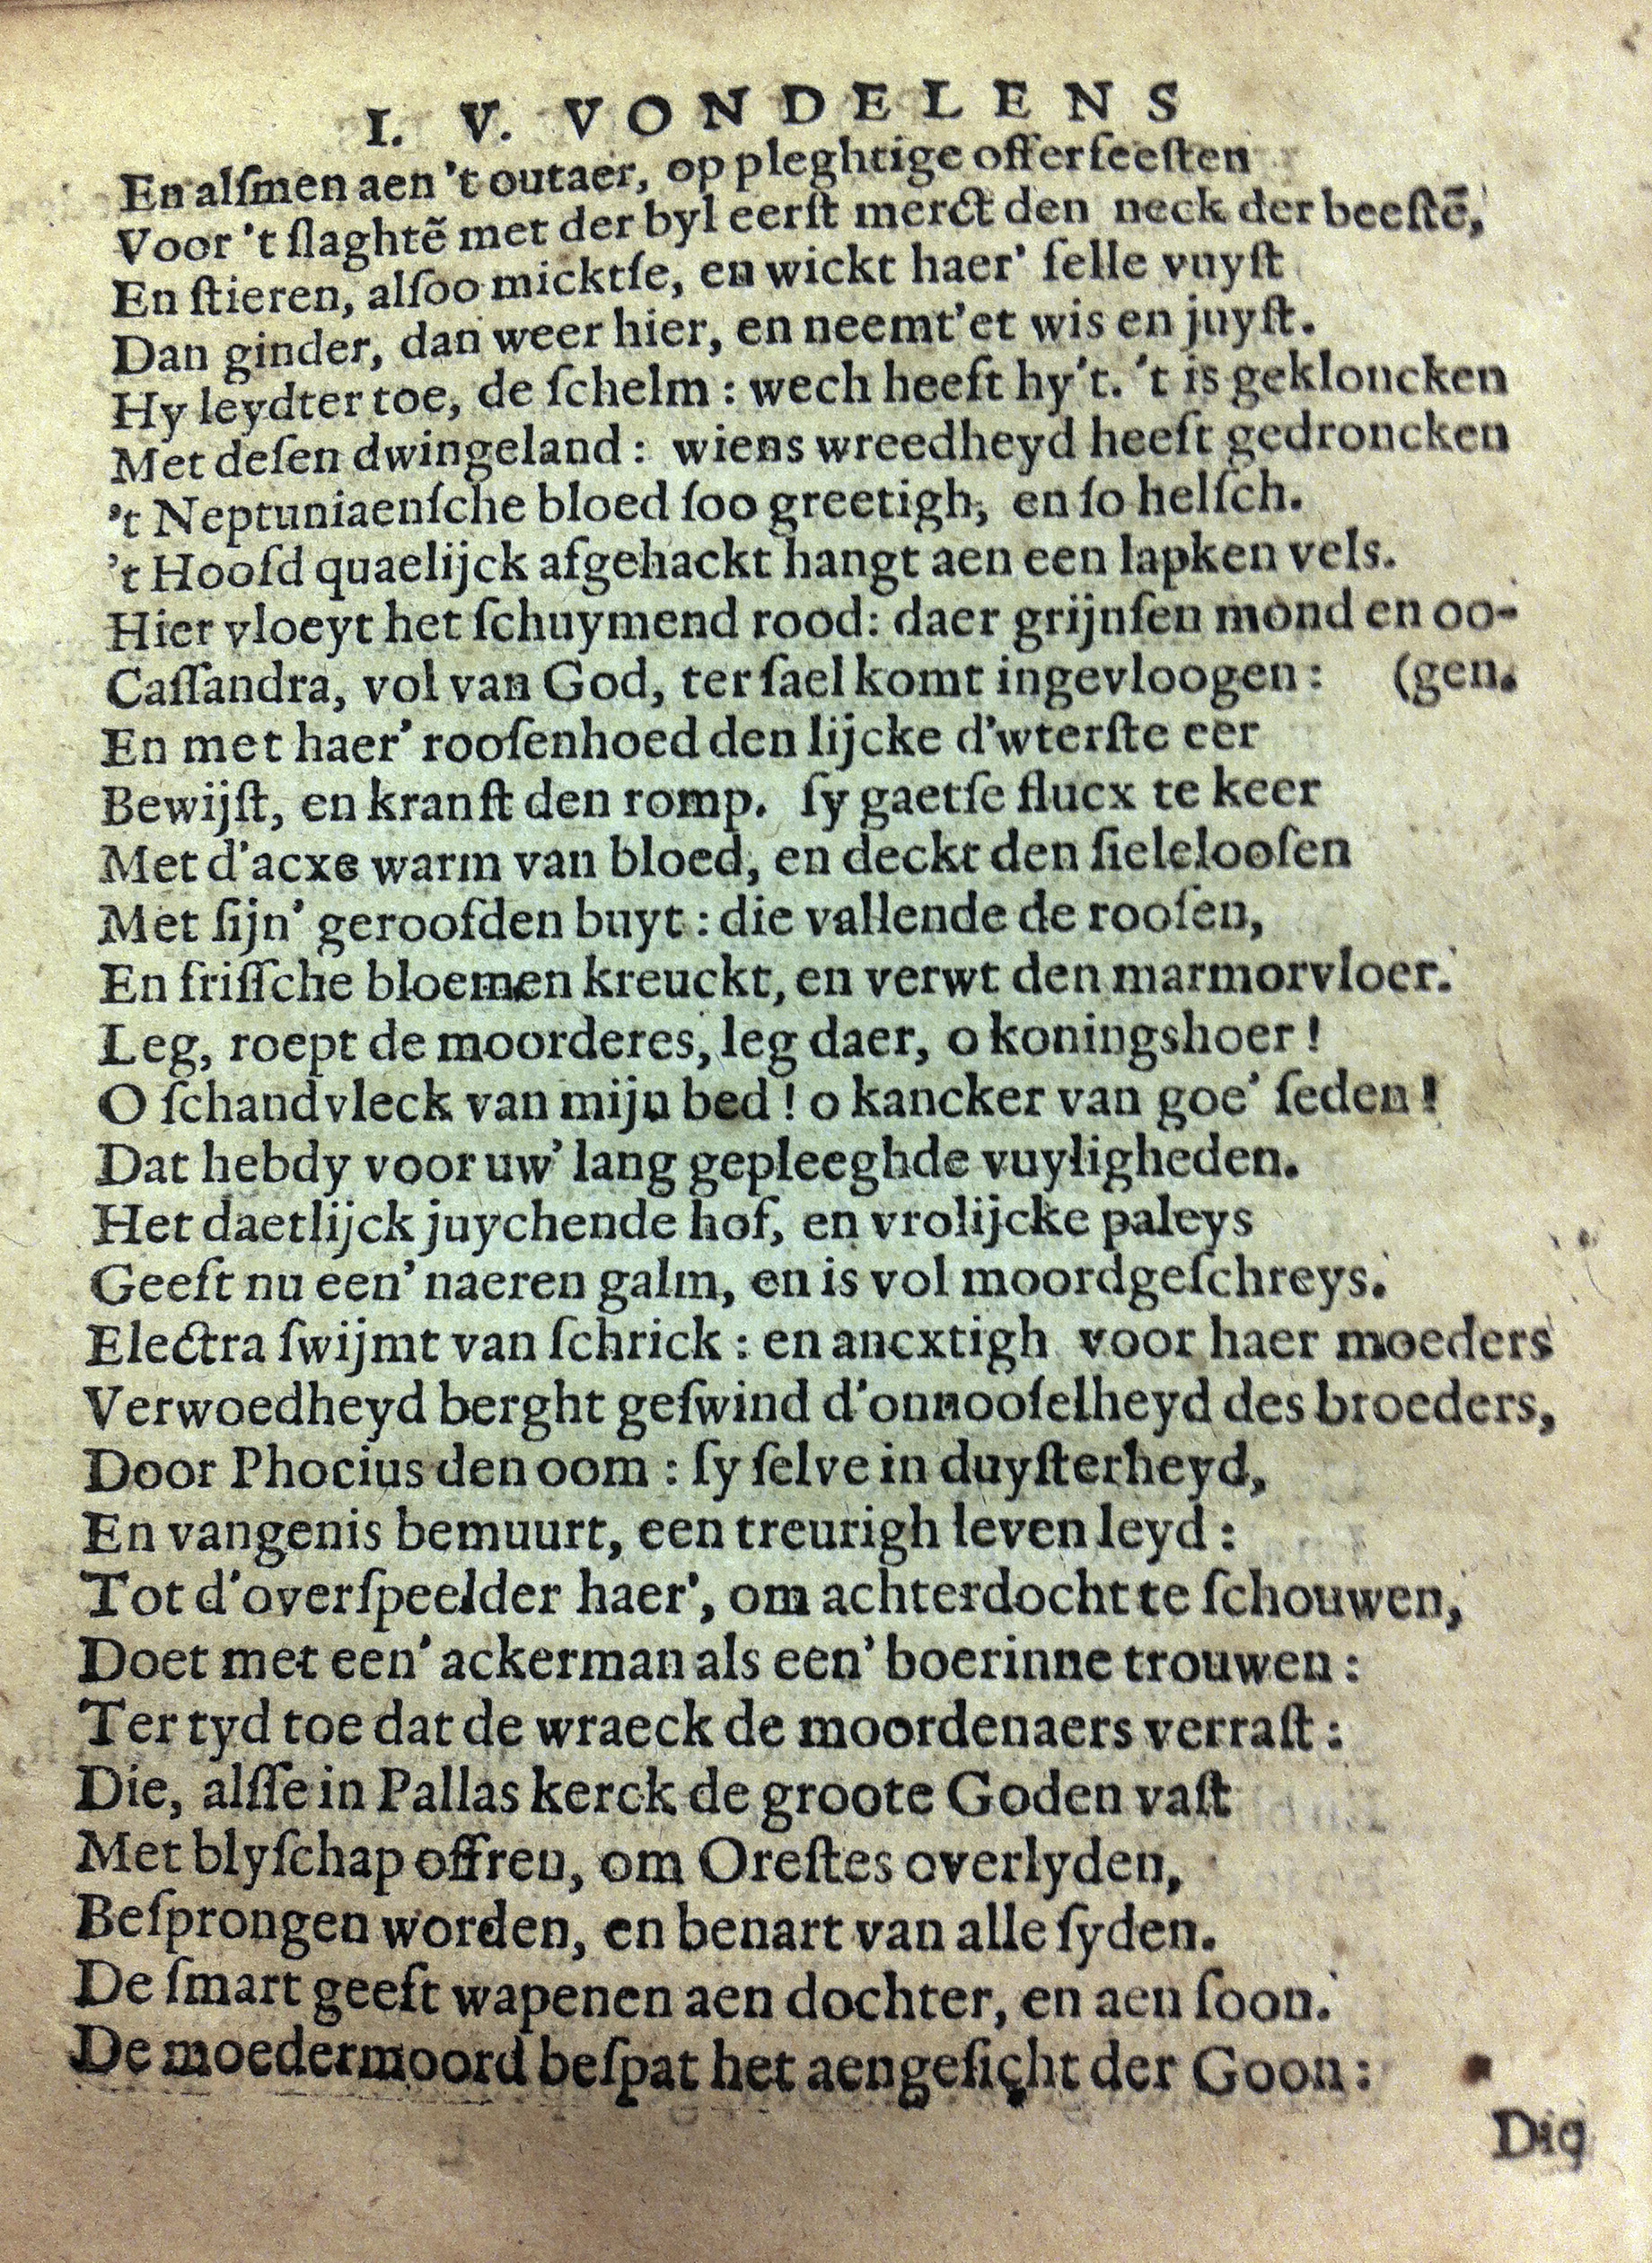 I. V. VONDELENS
En alſmen aen 't outaer, op pleghtige offerfeeſten
Voor 't ſlaghtẽ met der byl eerſt merct den neck der beeſtẽ,
En ſtieren, alſoo micktſe, en wickt haer' felle vuyſt
Dan ginder, dan weer hier, en neemt'et wis en juyſt.
Hy leydter toe, de ſchelm : wech heeft hy't. 't is gekloncken
Met deſen dwingeland : wiens wreedheyd heeft gedroncken
't Neptuniaenſche bloed ſoo greetigh, en ſo helſch.
't Hoofd quaelijck afgehackt hangt aen een lapken vels.
Hier vloeyt het ſchuymend rood: daer grijnſen mond en oo-
Caſſandra, vol van God, ter ſael komt ingevloogen : (gen.
En met haer' rooſenhoed den lijcke d'wterſte eer
Bewijſt, en kranſt den romp. ſy gaetſe flucx te keer
Met d'acxe warm van bloed, en deckt den ſielelooſen
Met ſijn' geroofden buyt : die vallende de rooſen,
En friſſche bloemen kreuckt, en verwt den marmorvloer.
Leg, roept de moorderes, leg daer, o koningshoer !
O ſchandvleck van mijn bed ! o kancker van goe' ſeden !
Dat hebdy voor uw' lang gepleeghde vuyligheden.
Het daetlijck juychende hof, en vrolijcke paleys
Geeft nu een' naeren galm, en is vol moordgeſchreys.
Electra ſwijmt van ſchrick : en ancxtigh voor haer moeders
Verwoedheyd berght geſwind d'onnooſelheyd des broeders,
Door Phocius den oom : ſy ſelve in duyſterheyd,
En vangenis bemuurt, een treurigh leven leyd :
Tot d'overſpeelder haer', om achterdocht te ſchouwen,
Doet met een' ackerman als een' boerinne trouwen :
Ter tyd toe dat de wraeck de moordenaers verraſt :
Die, alſſe in Pallas kerck de groote Goden vaſt
Met blyſchap offren, om Oreſtes overlyden,
Beſprongen worden, en benart van alle ſyden.
De ſmart geeft wapenen aen dochter, en aen ſoon.
De moedermoord beſpat het aengeſicht der Goon :